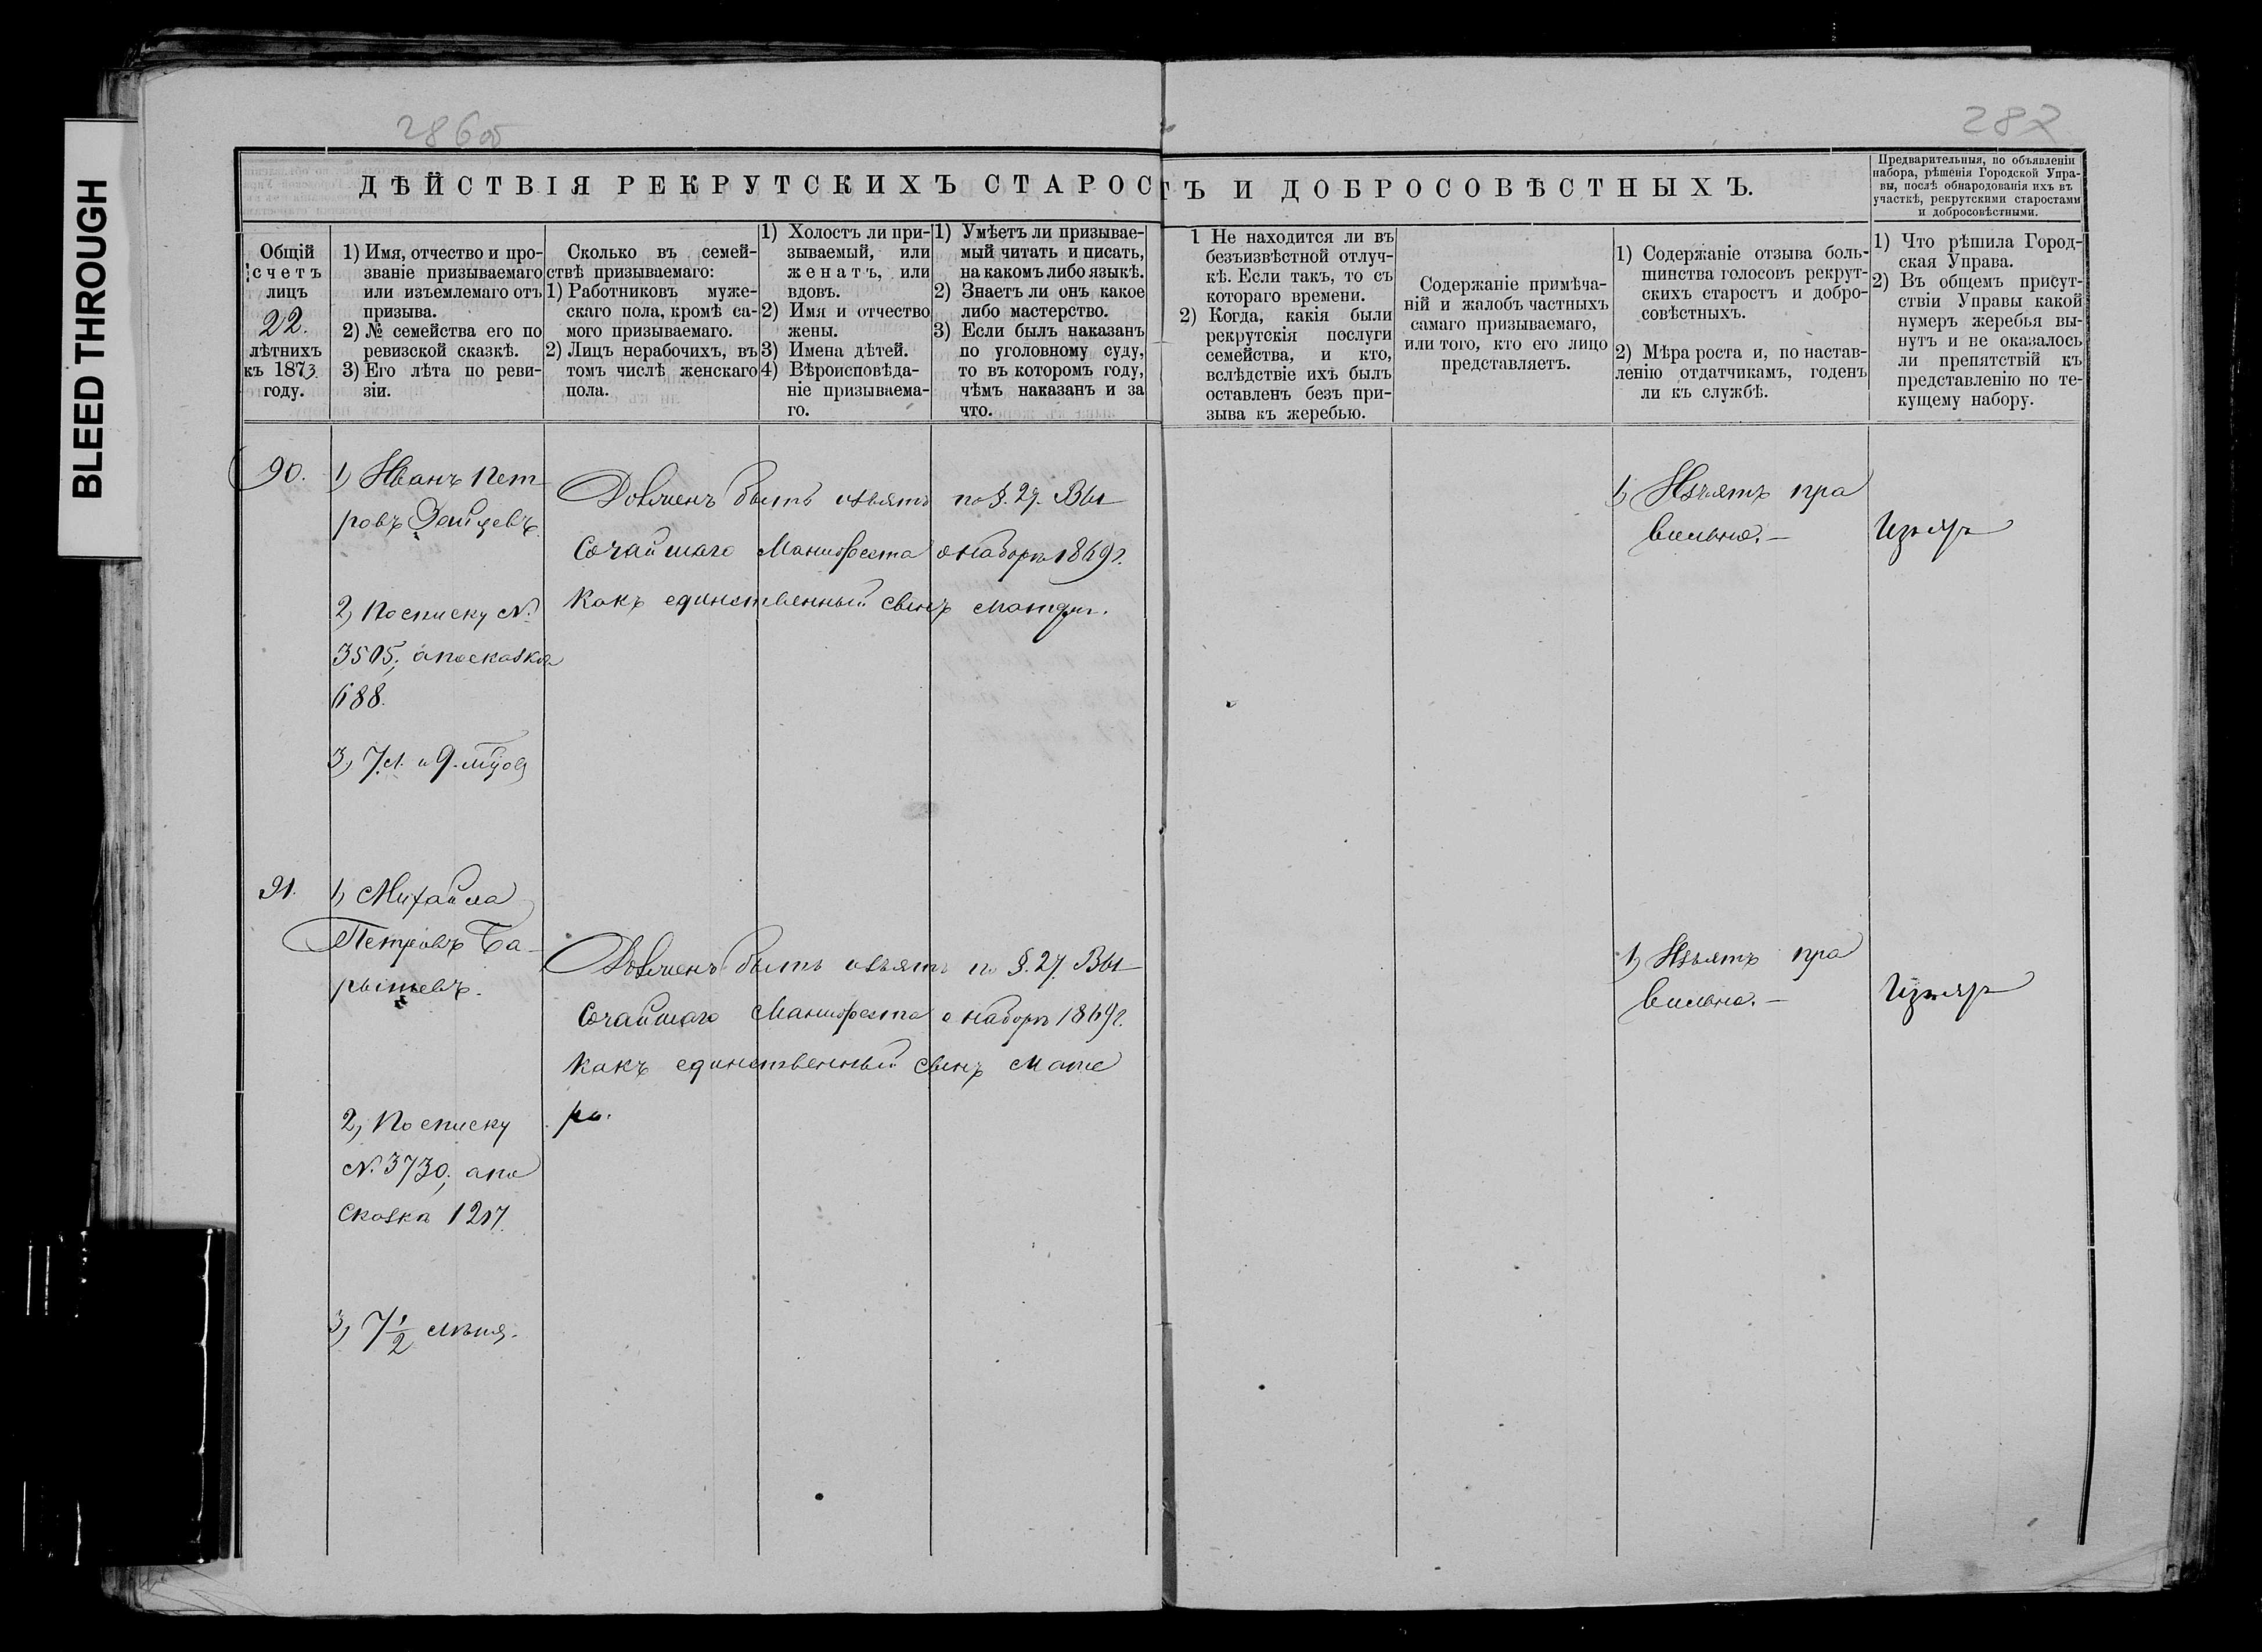 BLEED THROUGH
286об
287
ДѢЙСТВІЯ РЕКРУТСКИХЪ СТАРОСТЪ И ДОБРОСОВѢСТНЫХЪ.
Предварительныя, по объявленіи
набора, рѣшенія Городской Упра-
вы, послѣ обнародованія ихъ въ
участкѣ, рекрутскими старостами
и добросовѣстными.
Общій
счетъ
лицъ
22.
лѣтнихъ
къ 1873
году.
1) Имя, отчество и про-
званіе призываемаго
или изъемлемаго отъ
призыва.
2) № семейства его по
ревизской сказкѣ.
3) Его лѣта по реви-
зіи.
Сколько въ семей-
ствѣ призываемаго:
1) Работниковъ муже-
скаго пола, кромѣ са-
мого призываемаго.
2) Лицъ нерабочихъ, въ
томъ числѣ женскаго
пола.
1) Холостъ ли при-
зываемый, или
женатъ, или
вдовъ.
2) Имя и отчество
жены.
3) Имена дѣтей.
4) Вѣроисповѣда-
ніе призываема-
го.
1) Умѣетъ ли призывае-
мый читать и писать,
на какомъ либо языкѣ.
2) Знаетъ ли онъ какое
либо мастерство.
3) Если былъ наказанъ
по уголовному суду,
то въ которомъ году,
чѣмъ наказанъ и за
что.
1 Не находится ли въ
безъизвѣстной отлуч-
кѣ. Если такъ, то съ
котораго времени.
2) Когда, какія были
рекрутскія послуги
семейства, и кто,
вслѣдствіе ихъ былъ
оставленъ безъ при-
зыва къ жеребью.
Содержаніе примѣча-
ній и жалобъ частныхъ
самаго призываемаго,
или того, кто его лицо
представляетъ.
1) Содержаніе отзыва боль-
шинства голосовъ рекрут-
скихъ старостъ и добро-
совѣстныхъ.
2) Мѣра роста и, по настав-
ленію отдатчикамъ, годенъ
ли къ службѣ.
1) Что рѣшила Город-
ская Управа.
2) Въ общемъ присут-
ствіи Управы какой
нумеръ жеребья вы-
нутъ и не оказалось
ли препятствій къ
представленію по те-
кущему набору.
90.
1) Иванъ Пет
ровъ Зайцевъ.
2) По списку №
3505; а по сказкѣ
688.
3) 7 л. и 9.
Долженъ быть изъятъ по §. 27. Вы
сочайшаго Манифеста о наборѣ 1869 г.
какъ единственный сынъ матери.
1) Изъятъ пра
вильно. –
Изъятъ
91.
1) Михайла
Петровъ Ба
2) По списку
№ 3730; а по
сказкѣ 1217.
3) 7 1/2 лѣтъ.
Долженъ быть изъятъ по §. 27 Вы
сочайшаго Манифеста о наборѣ 1869 г.
какъ единственный сынъ мате
ри.
1) Изъятъ пра
вильно. –
Изъятъ